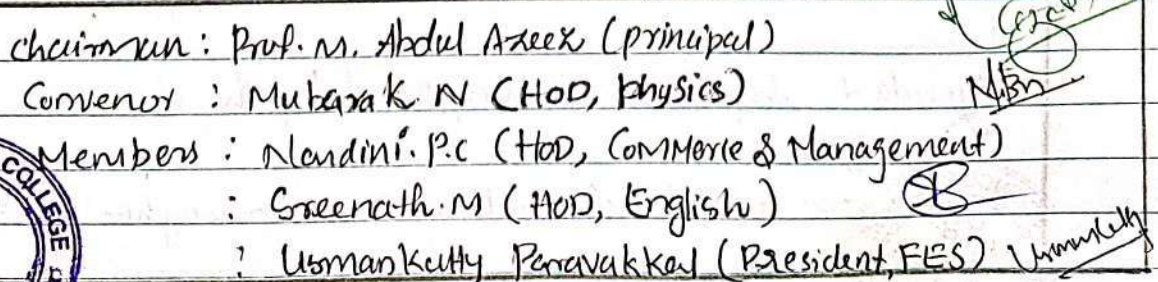 chairman : Prof. M. Abdul Azeez (principal)
Convenor : Mubarak. N (HOD, physics)
Members : Nandini. P.c (HOD, Commerce & Management)
: Sreenath. M (HOD, English)
: Usmankutty Paravakkal (President, FES)
COLLEGE